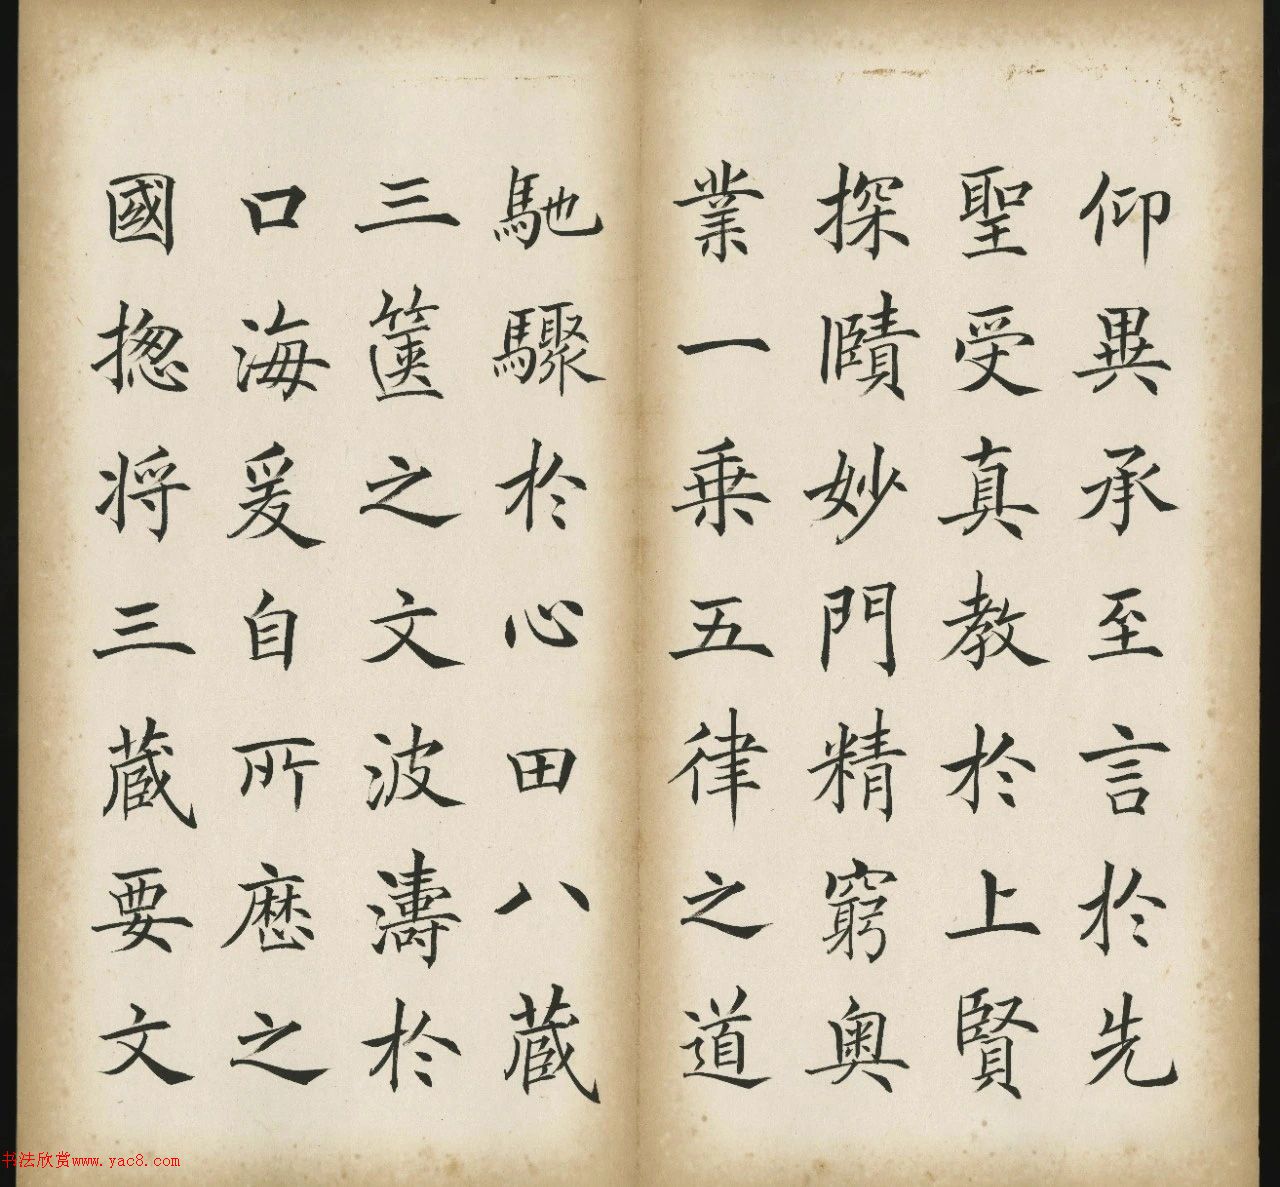 仰異承至言於先
聖受真教於上賢
探賾妙門精窮奥
業一乗五律之道
馳驟於心田八蔵
三篋之文波濤於
口海爰自所歴之
國揔将三蔵要文
书法欣赏www.yac8.com